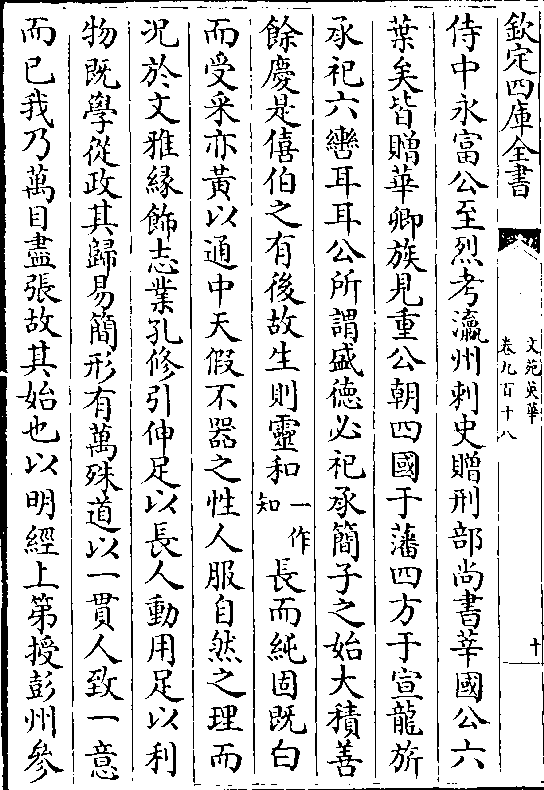 欽定四庫全書
文苑英華
卷九百十八
十
侍中永富公至烈考瀛州刺史贈刑部尚書莘國公六
葉矣皆贈華卿族見重公朝四國于藩四方于宣龍旂
承祀六轡耳耳公所謂盛德必祀承簡子之始大積善
餘慶是僖伯之有後故生則靈和一作知長而純固既白
而受采亦黃以通中天假不器之性人服自然之理而
况於文雅緣飾志業孔修引伸足以長人動用足以利
物既學從政其歸易簡形有萬殊道以一貫人致一意
而已我乃萬目盡張故其始也以明經上第授彭州參